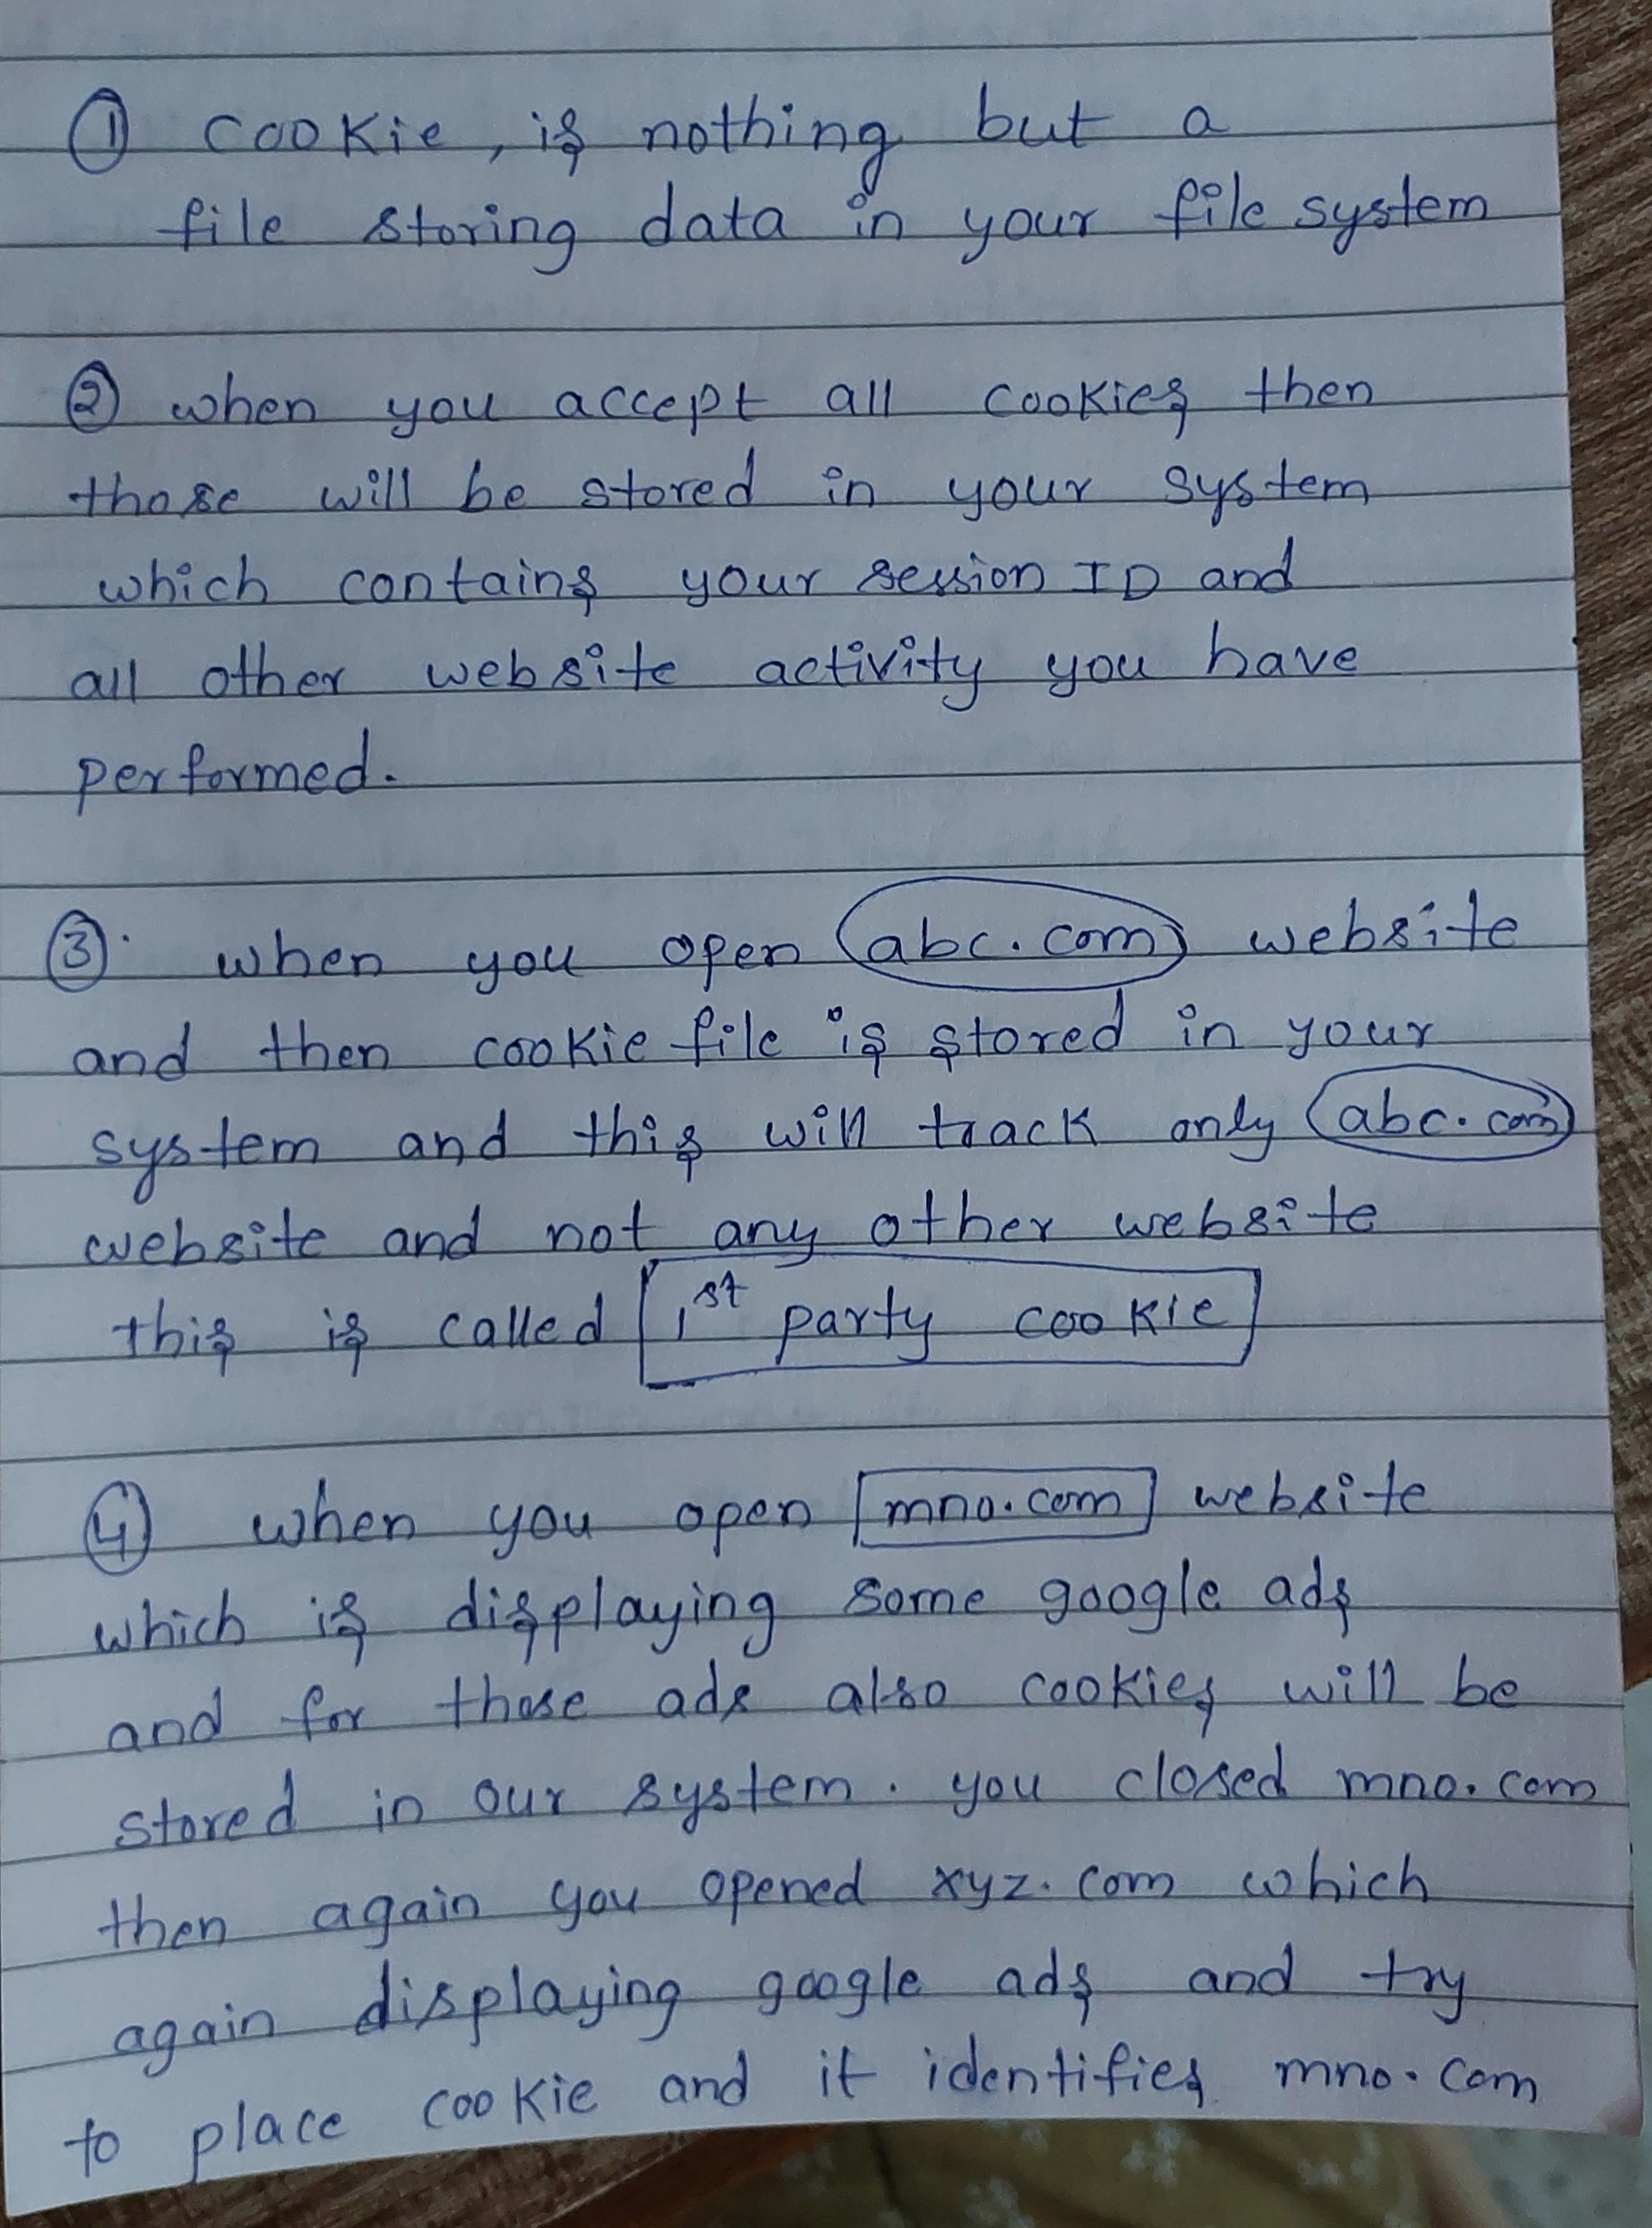 ① Cookie, is nothing but a
file storing data in your file system
② when you accept all cookies then
those will be stored in your system
which contains your session ID and
all other website activity you have
performed.
③. when you open abc.com website
and then cookie file is stored in your
system and this will track only abc.com
website and not any other website
this is called 1st party cookie
④ when you open mno.com website
which is displaying some google ads
and for those ads also cookies will be
stored in our system. you closed mno.com
then again you opened xyz.com which
again displaying google ads and try
to place cookie and it identifies mno.com